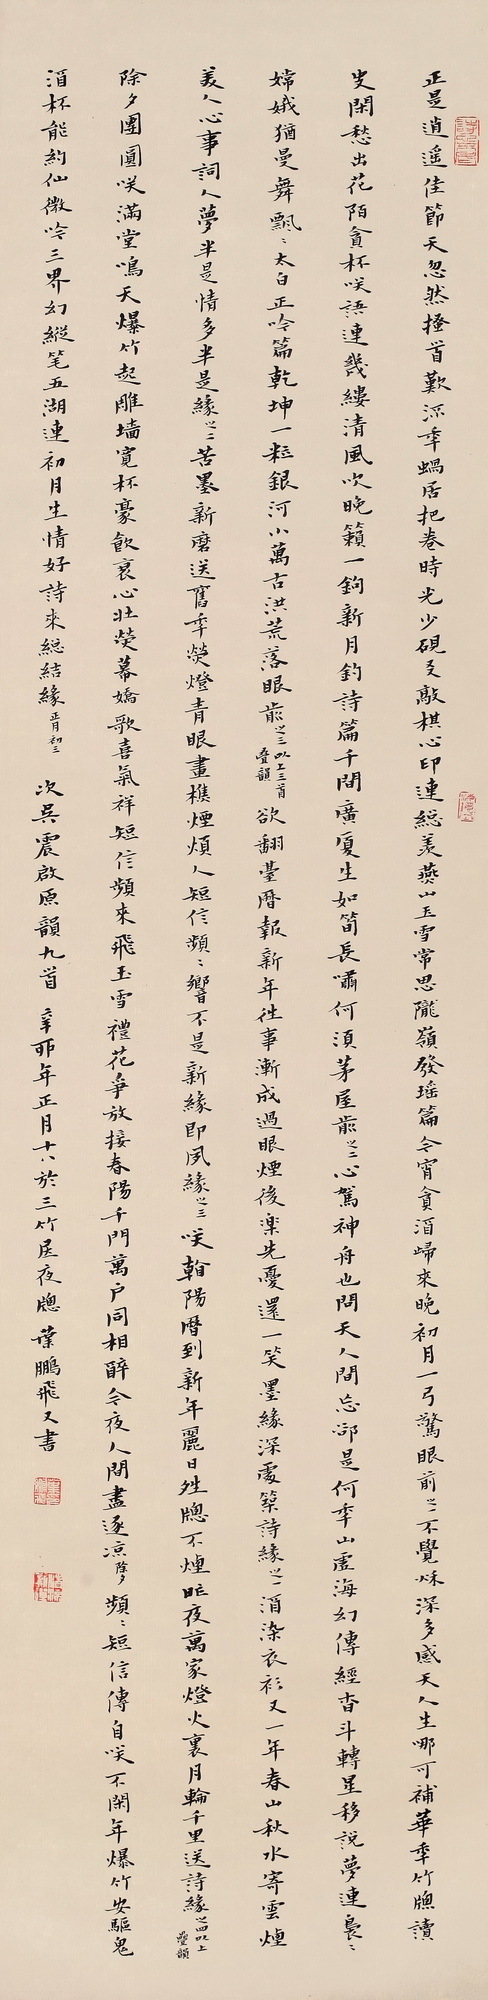 正是逍遥佳節天忽然搔首歎流年蝸居把卷時光少硯友敲棋心印連總羨燕山玉雪常思隴嶺發瑶篇今宵貪酒歸來晚初月一弓驚眼前之一不覺秋深多感天人生哪可補華年竹牕讀
史閑愁出花陌貪杯咲語連幾縷清風吹晚籟一鉤新月釣詩篇千間廣厦生如筍長嘯何須茅屋前之二心駕神舟也問天人間忘卻是何年山虛海幻傳經杳斗轉星移說夢連裊〻
嫦娥猶曼舞飄〻太白正吟篇乾坤一粒銀河小萬古洪荒落眼前之三以上三首疊韻欲翻臺曆報新年往事漸成過眼煙後楽先憂還一笑墨緣深處築詩緣之一酒染衣衫又一年春山秋水寄雲煙
美人心事詞人夢半是情多半是緣之二苦墨新磨送舊年熒燈青眼畫樵煙煩人短信頻〻響不是新緣即夙緣之三咲翰陽曆到新年麗日姓牕不煙昨夜萬家燈火裏月輪千里送詩緣之四以上疊韻
除夕團圓咲滿堂鳴天爆竹起雕墻寬杯豪飲衷心壯熒幕嬌歌喜氣祥短信頻來飛玉雪禮花爭放接春陽千門萬户同相醉今夜人間盡逐凉除夕頻〻短信傳自咲不閑年爆竹安驅鬼
酒杯能約仙微吟三界幻縱笔五湖連初月生情好詩來總結緣正月初三 次吴震啟原韻九首 辛卯年正月十八於三竹居夜牕 葉鵬飛又書